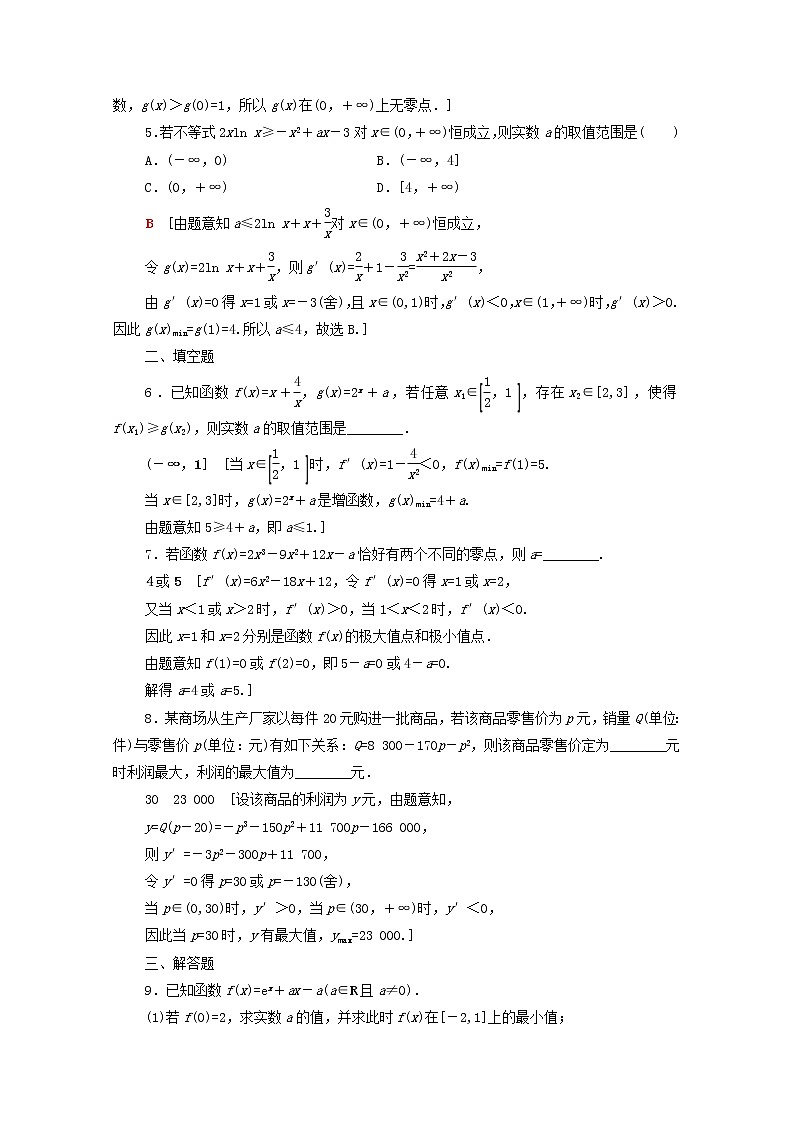 数，g(x)＞g(0)=1，所以 g(x)在(0，＋∞)上无零点．]
5.若不等式 2xln x≥－x²＋ax－3 对 x∈(0,＋∞)恒成立，则实数 a 的取值范围是(　　)
A．(－∞，0)　　B．(－∞，4]
C．(0，＋∞)　　D．[4，＋∞)
B　[由题意知 a≤2ln x＋x＋3/x对 x∈(0，＋∞)恒成立，
令 g(x)=2ln x＋x＋3/x，则 g′(x)=2/x＋1－3/x²=(x²＋2x－3)/x²，
由 g′(x)=0 得 x=1 或 x=－3(舍)，且 x∈(0,1)时，g′(x)＜0，x∈(1，＋∞)时，g′(x)＞0.
因此 g(x)min=g(1)=4.所以 a≤4，故选 B.]
二、填空题
6．已知函数 f(x)=x＋4/x，g(x)=2ˣ＋a，若任意 x₁∈[1/2，1]，存在 x₂∈[2,3]，使得
f(x₁)≥g(x₂)，则实数 a 的取值范围是________．
(－∞，1]　[当 x∈[1/2，1]时，f′(x)=1－4/x²＜0，f(x)min=f(1)=5.
当 x∈[2,3]时，g(x)=2ˣ＋a 是增函数，g(x)min=4＋a.
由题意知 5≥4＋a，即 a≤1.]
7．若函数 f(x)=2x³－9x²＋12x－a 恰好有两个不同的零点，则 a=________．
4 或 5　[f′(x)=6x²－18x＋12，令 f′(x)=0 得 x=1 或 x=2，
又当 x＜1 或 x＞2 时，f′(x)＞0，当 1＜x＜2 时，f′(x)＜0.
因此 x=1 和 x=2 分别是函数 f(x)的极大值点和极小值点．
由题意知 f(1)=0 或 f(2)=0，即 5－a=0 或 4－a=0.
解得 a=4 或 a=5.]
8．某商场从生产厂家以每件 20 元购进一批商品，若该商品零售价为 p 元，销量 Q(单位：
件)与零售价 p(单位：元)有如下关系：Q=8 300－170p－p²，则该商品零售价定为________元
时利润最大，利润的最大值为________元．
30　23 000　[设该商品的利润为 y 元，由题意知，
y=Q(p－20)=－p³－150p²＋11 700p－166 000，
则 y′=－3p²－300p＋11 700，
令 y′=0 得 p=30 或 p=－130(舍)，
当 p∈(0,30)时，y′＞0，当 p∈(30，＋∞)时，y′＜0，
因此当 p=30 时，y 有最大值，ymax=23 000.]
三、解答题
9．已知函数 f(x)=eˣ＋ax－a(a∈R 且 a≠0)．
(1)若 f(0)=2，求实数 a 的值，并求此时 f(x)在[－2,1]上的最小值；